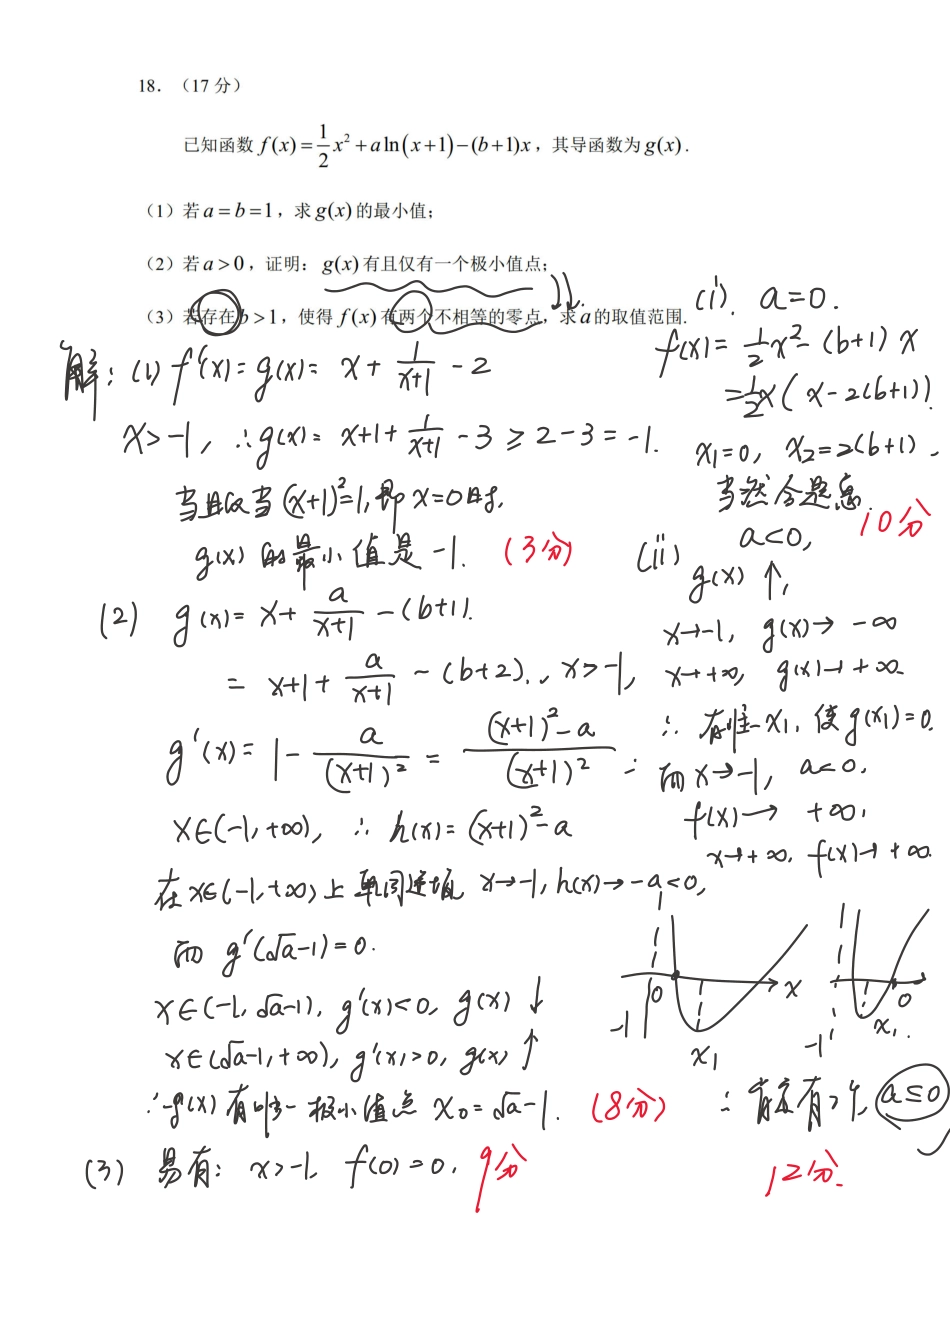 18. （17 分）
已知函数 f(x)=\frac{1}{2}x²+aln(x+1)−(b+1)x，其导函数为 g(x).
（1）若 a=b=1，求 g(x) 的最小值；
（2）若 a>0，证明：g(x) 有且仅有一个极小值点；
（3）若存在 b>1，使得 f(x) 有两个不相等的零点，求 a 的取值范围.
解：(1) f'(x)=g(x)= x+\frac{1}{x+1}-2
x>-1, ∴g(x)= x+1+\frac{1}{x+1}-3≥2-3=-1.
当且仅当(x+1)²=1,即x=0时,
g(x)的最小值是-1. (3分)
(2) g(x)= x+\frac{a}{x+1}-(b+1).
= x+1+\frac{a}{x+1}-(b+2)., x>-1,
g'(x)= 1-\frac{a}{(x+1)²}=\frac{(x+1)²-a}{(x+1)²}
x∈(-1,+∞), ∴ h(x)=(x+1)²-a
在x∈(-1,+∞)上单调递增, x→-1, h(x)→-a<0,
而 g'(√a-1)=0.
x∈(-1,√a-1), g'(x)<0, g(x)↓
x∈(√a-1,+∞), g'(x)>0, g(x)↑
∴g(x)有唯一极小值点 x₀=√a-1. (8分)
(3) 易有: x>-1, f(0)=0. 9分
(i). a=0.
f(x)=\frac{1}{2}x²-(b+1)x
=\frac{1}{2}x(x-2(b+1)).
x₁=0, x₂=2(b+1),
当然合题意. 10分
(ii) a<0,
g(x)↑,
x→-1, g(x)→-∞
x→+∞, g(x)→+∞.
∴有唯一x₁,使g(x₁)=0.
而x→-1, a<0,
f(x)→+∞,
x→+∞, f(x)→+∞.
0 x
-1 x₁
0
-1 x₁.
有2个, a≤0
12分.